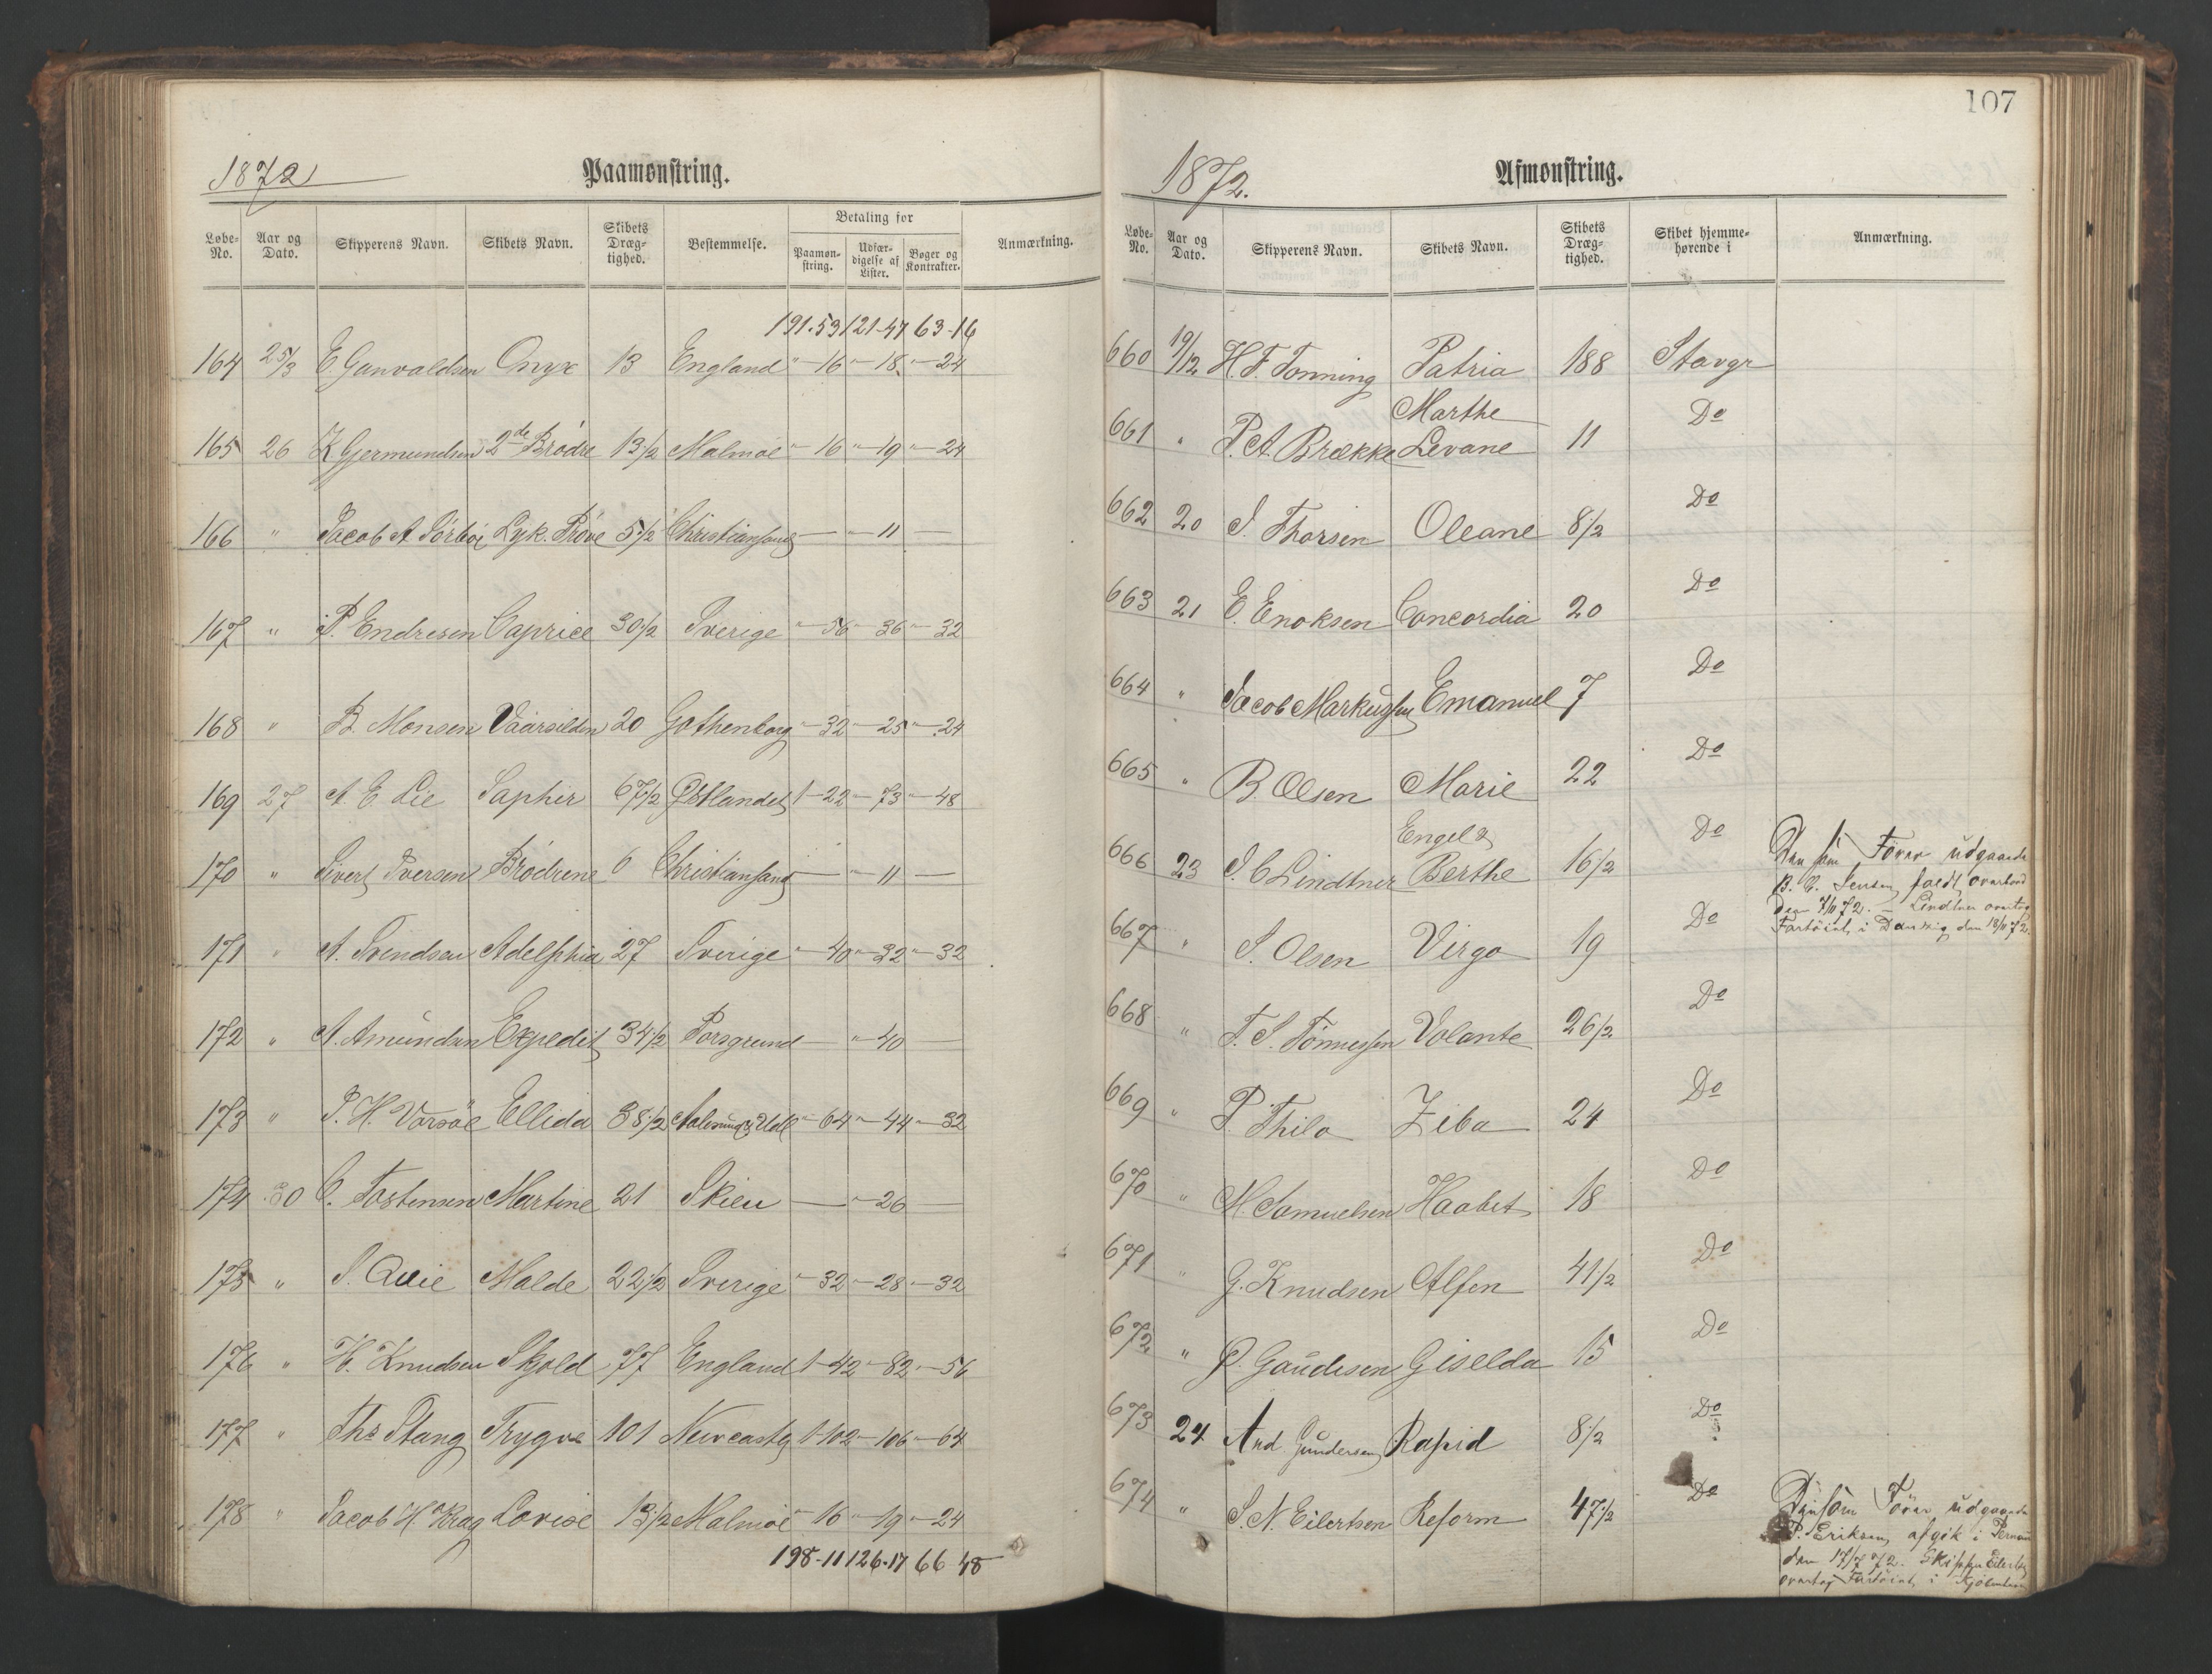 107
1872
Paamønstring.
Løbe-No. Aar og Dato. Skipperens Navn. Skibets Navn. Skibets Dræg-tighed. Bestemmelse. Betaling for Paamøn-string. Udfær-digelse af Lister. Bøger og Kontrakter. Anmærkning.
191-53 121-47 63-16
164 25/3 E. Ganvaldsen Onyx 13 England "-16 "-18 "-24
165 26 K Gjermundsen 2de Brødre 13 1/2 Malmöe "-16 "-19 "-24
166 " Jacob A Sörböe Lyk. Pröve 5 1/2 Christiansand — "-11 —
167 " P. Endresen Caprice 30 1/2 Sverige "-56 "-36 "-32
168 " B. Monsen Vaarsilden 20 Gothenborg "-32 "-25 "-24
169 27 A. E. Lie Saphir 67 1/2 Østlandet 1-22 "-73 "-48
170 " Sivert Iversen Brödrene 6 Christiansand — "-11 —
171 " A. Svendsen Adelphia 27 Sverige "-40 "-32 "-32
172 " A. Amundsen Expedit 34 1/2 Porsgrund — "-40 —
173 " P. H. Vorsöe Ellida 38 1/2 Aalesund & Udl "-64 "-44 "-32
174 30 C. Tostensen Martine 21 Skien — "-26 —
175 " S. Qvie Malde 22 1/2 Sverige "-32 "-28 "-32
176 " H. Knudsen Skjold 77 England 1-42 "-82 "-56
177 " Ths Stang Trygve 101 Newcastle 1-102 "-106 "-64
178 " Jacob H. Krag Lovise 13 1/2 Malmöe "-16 "-19 "-24
198-11 126-17 66 48
1872.
Afmønstring.
Løbe-No. Aar og Dato. Skipperens Navn. Skibets Navn. Skibets Dræg-tighed. Skibet hjemme-hørende i Anmærkning.
660 19/12 H. F. Tonning Patria 188 Stavgr
661 " P. A. Brække Marthe Levane 11 Do
662 20 S. Thorsen Oleane 8 1/2 Do
663 21 E. Enoksen Concordia 20 Do
664 " Jacob Markussen Emanuel 7 Do
665 " B. Olsen Marie 22 Do
666 23 S. C Lindtner Engel & Berthe 16 1/2 Do
Den som Förer udgaaede
B. C. Jensen faldt overbord
den 7/11 72. — Lindtner overtog
Fartöiet i Danzig den 18/11 72.
667 " S. Olsen Virgo 19 Do
668 " T. S. Tönnessen Volante 26 1/2 Do
669 " P. Thilo Ziba 24 Do
670 " M Samuelsen Haabet 18 Do
671 " G. Knudsen Alfen 41 1/2 Do
672 " P. Gaudesen Giselda 15 Do
673 24 And Gundersen Rapid 8 1/2 Do
674 " S. N. Eilertsen Reform 47 1/2 Do
Den som Förer udgaaede
P. Eriksen, afgik i Pernau
den 17/7 72. Skipper Eilertsen
overtog Fartöiet i